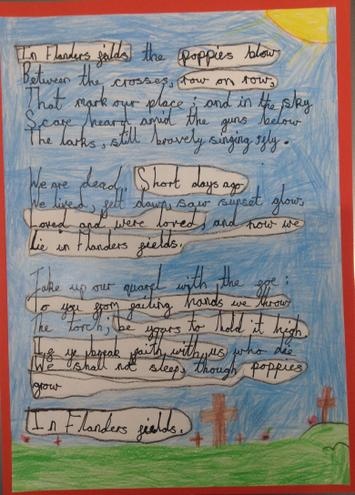 In Flanders fields the poppies blow
Between the crosses, row on row,
That mark our place; and in the sky
Scarc heard amid the guns below
The larks, still bravely singing fly.
We are dead, Short days ago
We lived, felt dawn, saw sunset glow,
Loved and were loved, and now we
Lie in Flanders fields.
Take up our quarl with the foe:
To you from failing hands we throw
The torch; be yours to hold it high.
If ye break faith with us who die
We shall not sleep, though poppies
grow
In Flanders fields.